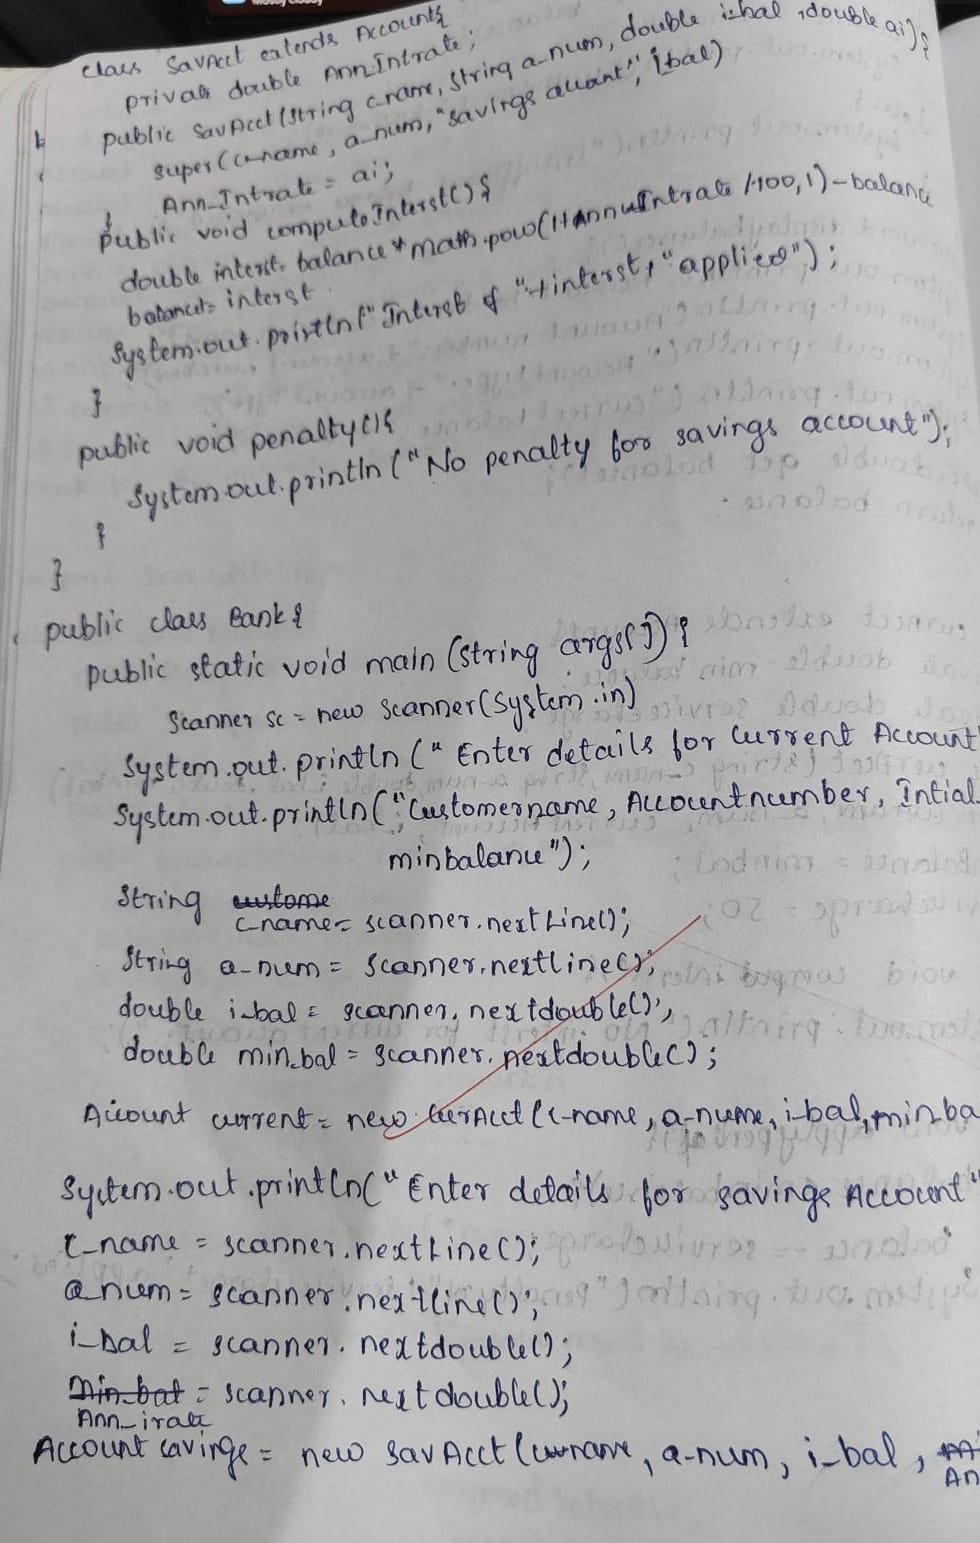 class SavAcct extends Account{
private double Ann_Intrate;
public SavAcct (String c_name, String a_num, double i_bal, double ai){
super(c_name, a_num, "savings account", i_bal)
Ann_Intrate = ai;
}
public void computeInterst(){
double interst = balance * math.pow(1+AnnuIntrate /100,1) - balance
balance+= interst
System.out.println("Interst of "+interst+"applied");
}
public void penalty(){
System.out.println("No penalty for savings account");
}
}
public class Bank{
public static void main (String args[]) {
Scanner sc = new Scanner(System.in)
System.out.println("Enter details for Current Account"
System.out.println("Customername, Accountnumber, Intial
minbalance");
String custome
c_name= scanner.nextLine();
String a_num = scanner.nextline();
double i_bal = scanner.nextdouble();
double min_bal = scanner.nextdouble();
Account current = new CurAcct(c_name, a_nume, i_bal, min_ba
System.out.println("Enter details for savings Account"
c_name = scanner.nextLine();
a_num = scanner.nextline();
i_bal = scanner.nextdouble();
min_bat = scanner.nextdouble();
Ann_irate
Account savings = new SavAcct( a_num, i_bal,
An